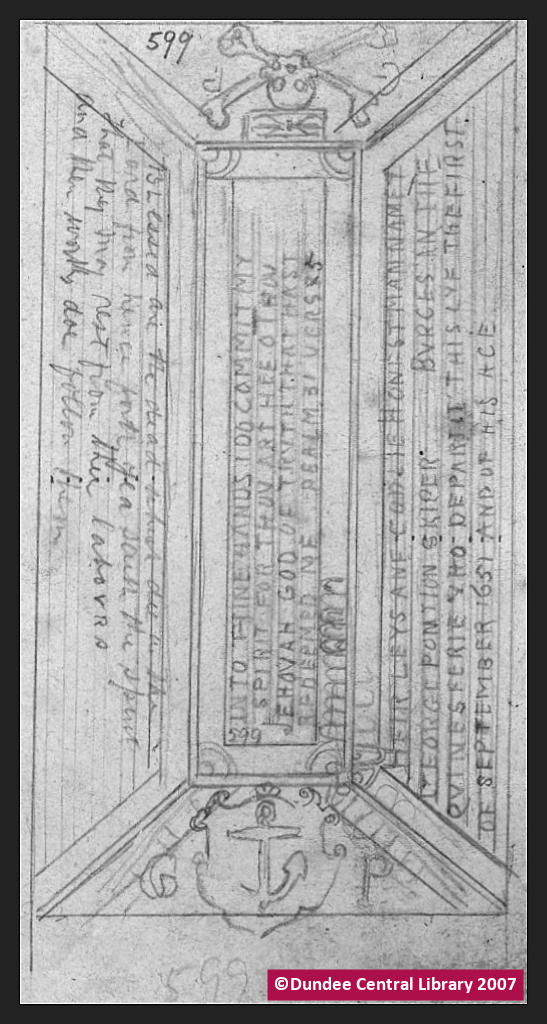 599
BLessed are the dead which die in the
Lord from hence forth yea saith the spirit
that they may rest from their LaboVRS
and their works doe follow them
INTO THINE HANDS I DO COMMIT MY
SPIRIT FOR THOV ART HEE O THOV
JEHOVAH GOD OF TRVTH THAT HAST
REDEEMED ME PSALM 31 VERS &5
599
HEIR LEYS ANE GODLIE HONEST MAN NAMET
GEORGE PONTION SKIPER BVRGES IN THE
QVINESFERIE WHO DEPARIT THIS LYE THE FIRST
OF SEPTEMBER 1651 AND OF HIS AGE
G P
599
©Dundee Central Library 2007